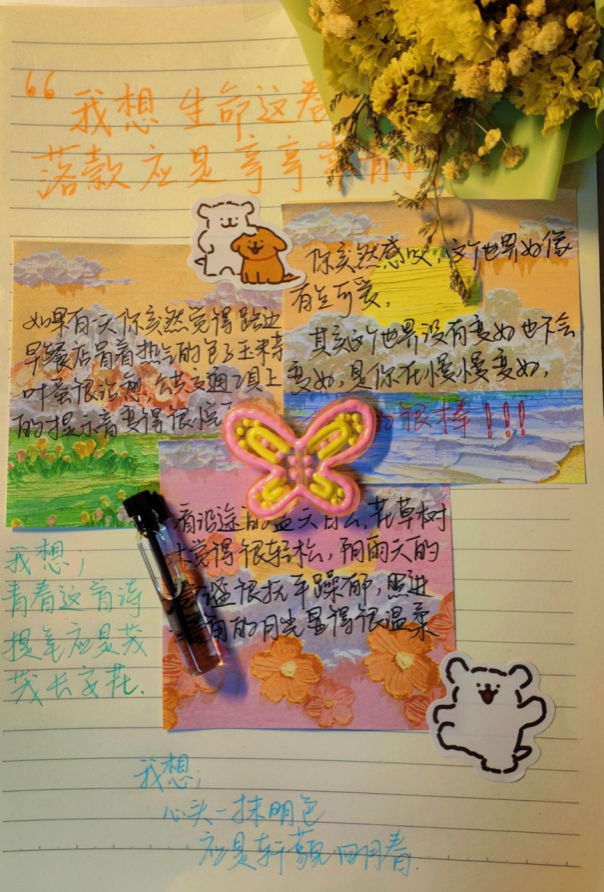 “我想 生命这卷
落款应是亭亭
如果有一天你突然觉得路边
早餐店冒着热气的包子玉米
叶蛋很治愈,公共交通工具上
的提示音变得很悦
你突然感叹,这个世界好像
有些可爱。
其实这个世界没有变好也不会
变好,是你在慢慢变好,
很棒!!!
看沿途的蓝天白云,花草树
觉得很轻松,阴雨天的
很抚平躁郁,照进
的月光显得很温柔
我想;
青春这首诗
提笔应是茂
茂长安花.
我想;
心头一抹明色
应是轩